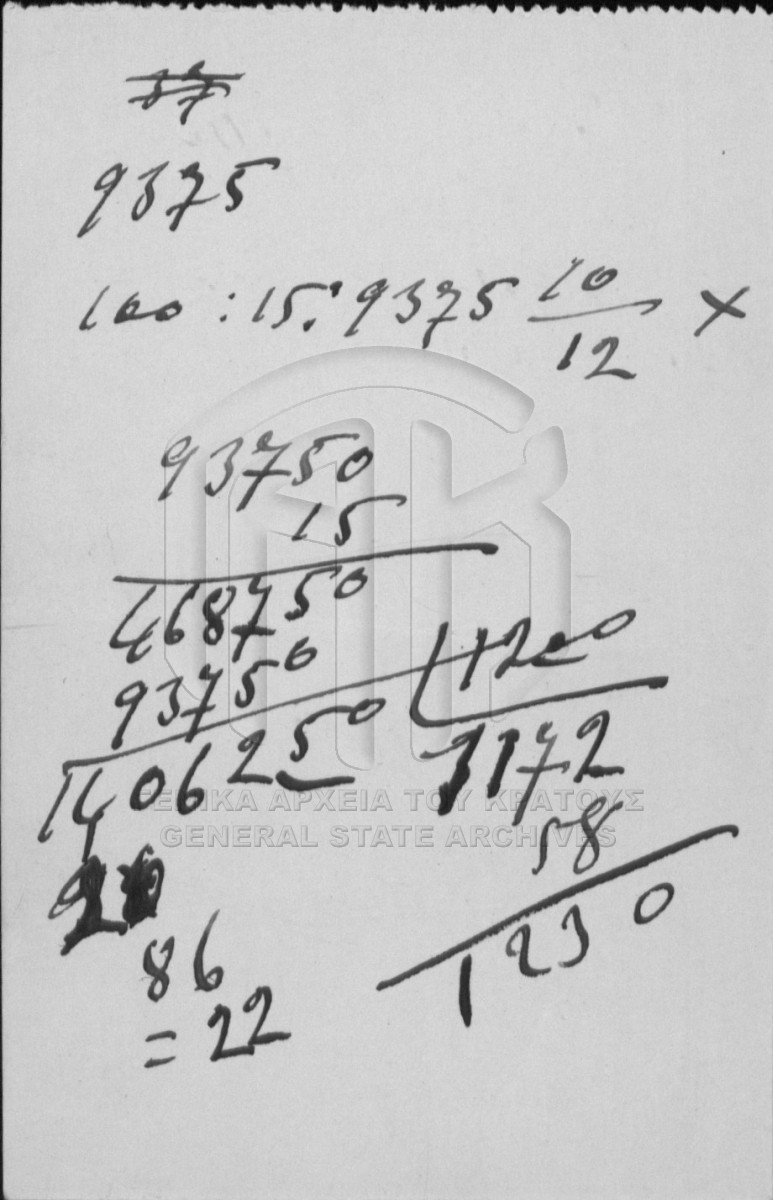 57
9375
100 : 15 : 9375 10/12 ×
93750
15
468750
93750
1406250
1200
1172
58
1230
86
= 22
ΓΕΝΙΚΑ ΑΡΧΕΙΑ ΤΟΥ ΚΡΑΤΟΥΣ
GENERAL STATE ARCHIVES